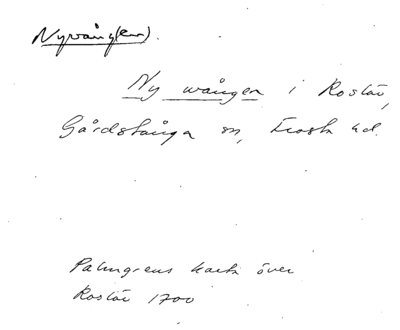 Nyvång(en).
Ny wången i Roslöv,
Gårdstånga sn, Frosta hd.
Palmgrens karta över
Roslöv 1700